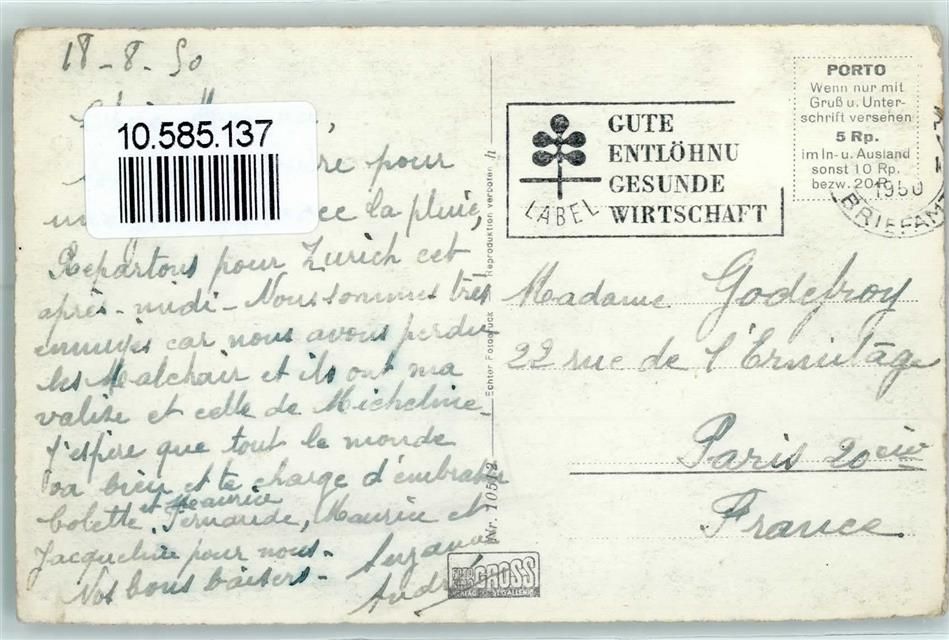 18-8-50
10.585.137
pour
la pluie,
Repartons pour Zurich cet
après-midi - Nous sommes très
ennuyés car nous avons perdu
les Malchair et ils ont ma
valise et celle de Micheline -
J'espère que tout le monde
va bien et te charge d'embrasser
et Maurice
Colette, Fernande, Maurice et
Jacqueline pour nous -
Nos bons baisers -
Suzanne
André
Nr. 10512
Echter Fotodruck Reproduktion verboten
GROSS
ST. GALLEN
LABEL
GUTE
ENTLÖHNU
GESUNDE
WIRTSCHAFT
PORTO
Wenn nur mit
Gruß u. Unter-
schrift versehen
5 Rp.
im In- u. Ausland
sonst 10 Rp.
bezw. 20 R
1950
BRIEFAM
Madame Godefroy
22 rue de l'Ermitage
Paris 20ème
France